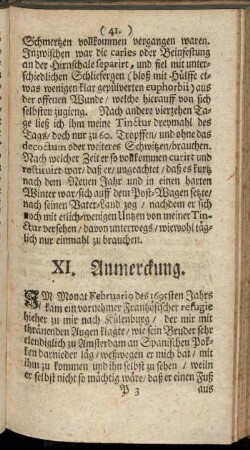 ( 41. )
Schmertzen vollkommen vergangen waren.
Inzwischen war die caries oder Beinfestung
an der Hirnschale separirt, und fiel mit unter-
schiedlichen Schliefergen (bloß mit Hülffe et-
was wenigen klar gepülverten euphorbii) aus
der offenen Wunde / welche hierauff von sich
selbsten zugieng. Nach andere vierzehen Ta-
ge ließ ich ihm meine Tinctur dreymahl des
Tags / doch nur zu 60. Tropffen / und ohne das
decoctum oder weiteres Schwitzen / brauchen.
Nach welcher Zeit er so vollkommen curirt und
restituirt war / daß er / ungeachtet / daß es kurtz
nach dem Neuen Jahr und in einen harten
Winter war / sich auff dem Post-Wagen setzte /
nach seinen Vater-Land zog / nachdem er sich
noch mit etlich-wenigen Untzen von meiner Tin-
ctur versehen / davon unterwegs / wiewohl täg-
lich nur einmahl zu brauchen.
XI. Anmerckung.
IM Monat Februario des 1695sten Jahrs
kam ein vornehmer Frantzösischer refugie
hieher zu mir nach Külenburg / der mir mit
thränenden Augen klagte / wie sein Bruder sehr
elendiglich zu Amsterdam an Spanischen Po-
cken darnieder läg / weßwegen er mich bat / mit
ihm zu kommen und ihn selbst zu sehen / weiln
er selbst nicht so mächtig wäre / daß er einen Fuß
P 3 aus